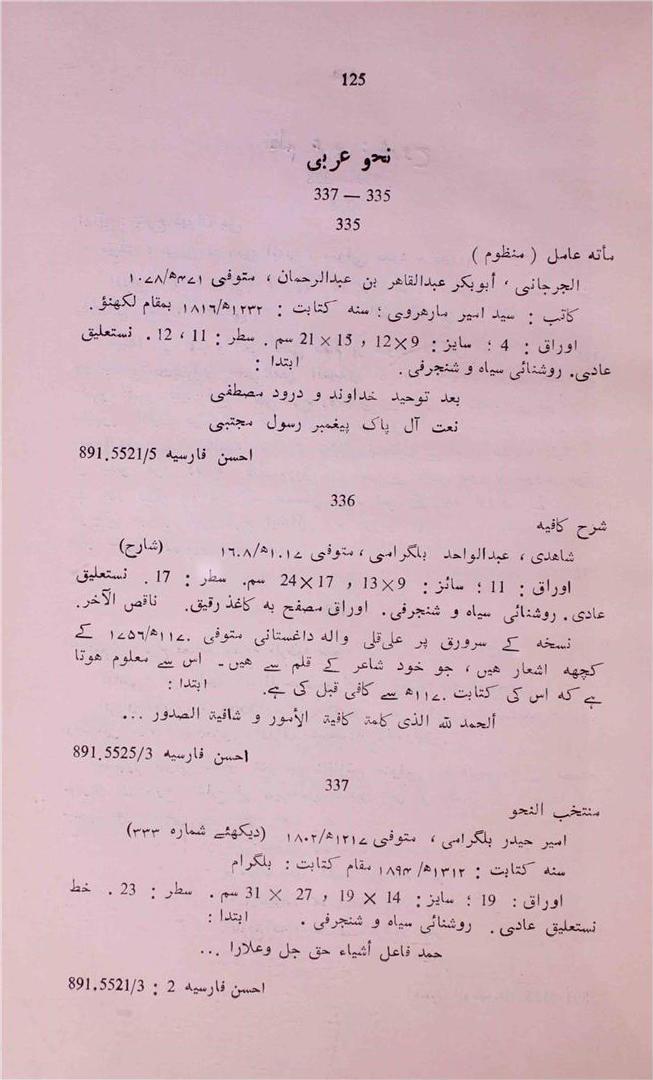 125
نحو عربی
335 — 337
335
مأته عامل ( منظوم )
الجرجانی ، أبوبکر عبدالقاهر بن عبدالرحمان ، متوفی ۴۷۱ھ/۱۰۷۸
کاتب : سید امیر مارهروی ؛ سنه کتابت : ۱۲۳۲ھ/۱۸۱۶ بمقام لکهنؤ .
اوراق : 4 ؛ سایز : 9×12 , 15 × 21 سم . سطر : 11 ، 12 . نستعلیق
عادی. روشنائی سیاه و شنجرفی . ابتدا :
بعد توحید خداوند و درود مصطفی
نعت آل پاک پیغمبر رسول مجتبی
احسن فارسیه 891.5521/5
336
شرح کافیه
شاهدی ، عبدالواحد بلگرامی ، متوفی ۱۰۱۷ھ/۱۶۰۸ (شارح)
اوراق : 11 ؛ سائز : 9×13 , 17 ×24 سم. سطر : 17 . نستعلیق
عادی . روشنائی سیاه و شنجرفی. اوراق مصفح به کاغذ رقیق. ناقص الآخر.
نسخه کے سرورق پر علی‌قلی واله داغستانی متوفی ۱۱۷۰ھ/۱۷۵۶ کے
کچهه اشعار هیں ، جو خود شاعر کے قلم سے هیں ۔ اس سے معلوم هوتا
ہے که اس کی کتابت ۱۱۷۰ھ سے کافی قبل کی ہے. ابتدا :
ألحمد لله الذی کلمة کافیة الأمور و شافیة الصدور ...
احسن فارسیه 891.5525/3
337
منتخب النحو
امیر حیدر بلگرامی ، متوفی ۱۲۱۷ھ/۱۸۰۲ (دیکهئے شماره ۳۳۳)
سنه کتابت : ۱۳۱۲ھ/ ۱۸۹۴ مقام کتابت : بلگرام
اوراق : 19 ؛ سایز : 14 × 19 , 27 × 31 سم . سطر : 23 . خط
نستعلیق عادی . روشنائی سیاه و شنجرفی . ابتدا :
حمد فاعل أشیاء حق جل وعلارا ...
احسن فارسیه 2 : 891.5521/3